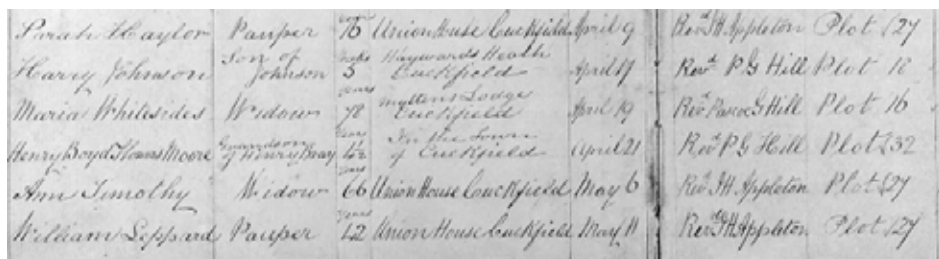 Sarah Haylor Pauper years 76 Union House Cuckfield April 9 Revd J H Appleton Plot 127
Harry Johnson Son of Johnson 3 Haywards Heath Cuckfield April 17 Revd P G Hill Plot 18
Maria Whitesides Widow years 78 Myttens Lodge Cuckfield April 19 Revd Pascoe G Hill Plot 16
Henry Boyd Thomas Moore Grandson of Henry Bray years In the Town of Cuckfield April 21 Revd P G Hill Plot 132
Ann Timothy Widow years 66 Union House Cuckfield May 6 Revd J H Appleton Plot 127
William Leppard Pauper years 42 Union House Cuckfield May 11 Revd J H Appleton Plot 127